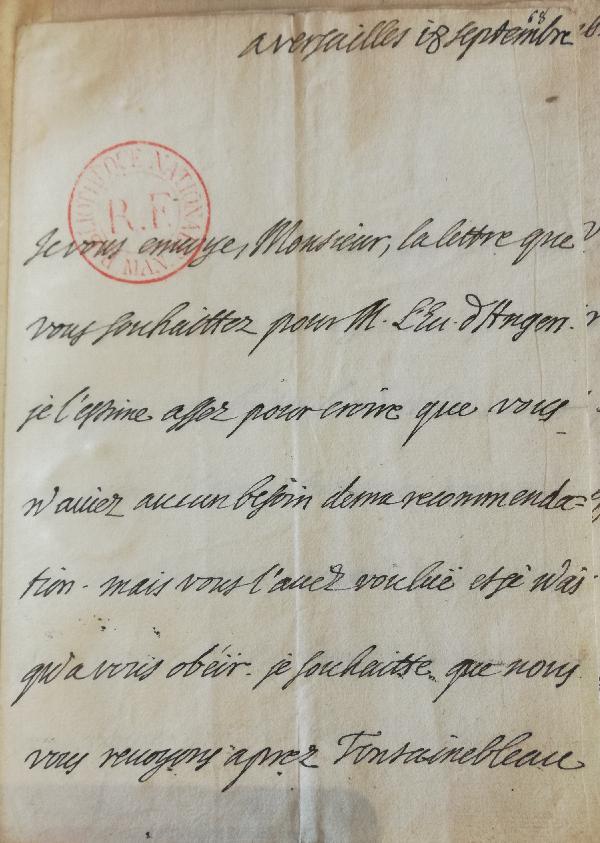 68
a versailles 18 septembre
BIBLIOTHEQUE NATIONALE MAN
R.F.
Je vous enuoye, Monsieur, la lettre que
vous souhaittez pour M. L'Eu. d'Angers.
je l'estime assez pour croire que vous
n'auiez aucun besoin dema recommenda=
tion. mais vous l'auez vouluë et je n'ais
qu'a vous obéir. je souhaitte que nous
vous reuoyons aprez Fontainebleau